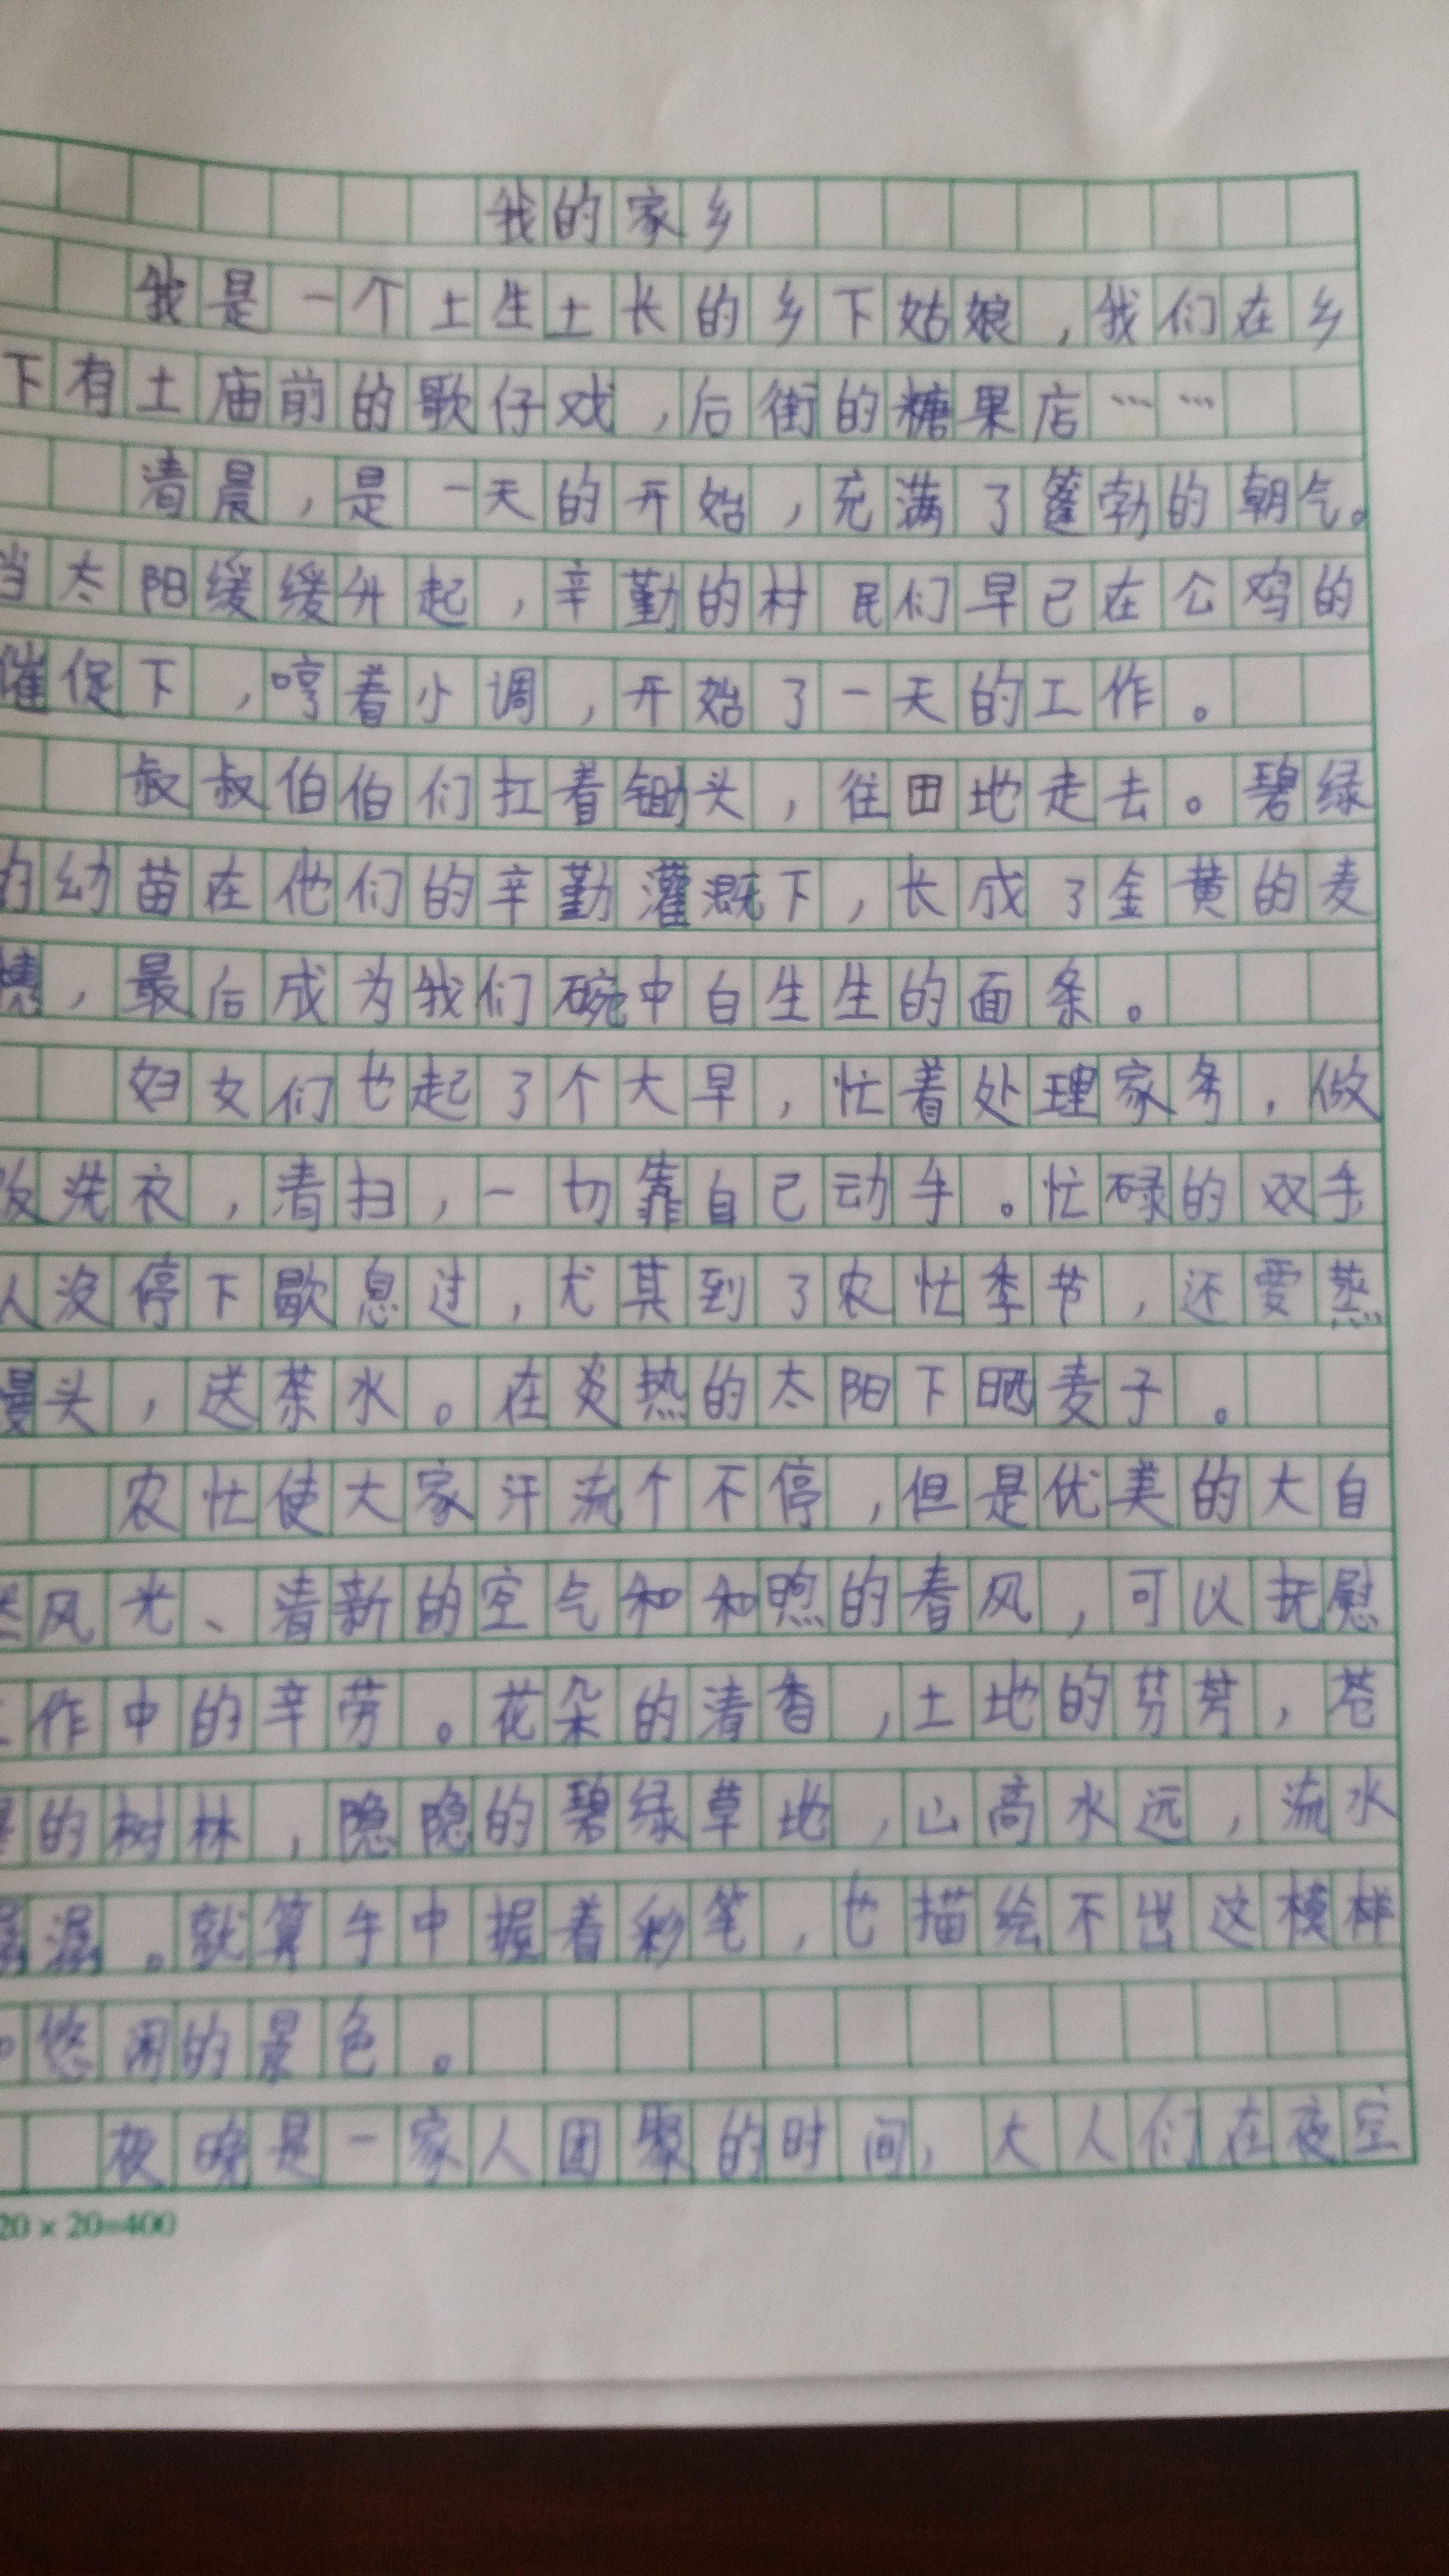 我的家乡
我是一个土生土长的乡下姑娘，我们在乡
下有土庙前的歌仔戏，后街的糖果店……
清晨，是一天的开始，充满了篷勃的朝气。
当太阳缓缓升起，辛勤的村民们早已在公鸡的
催促下，哼着小调，开始了一天的工作。
叔叔伯伯们扛着锄头，往田地走去。碧绿
的幼苗在他们的辛勤灌溉下，长成了金黄的麦
穗，最后成为我们碗中白生生的面条。
妇女们也起了个大早，忙着处理家务，做
饭洗衣，清扫，一切靠自己动手。忙碌的双手
从没停下歇息过，尤其到了农忙季节，还要蒸
馒头，送茶水。在炎热的太阳下晒麦子。
农忙使大家汗流个不停，但是优美的大自
然风光、清新的空气和和煦的春风，可以抚慰
工作中的辛劳。花朵的清香，土地的芬芳，苍
的树林，隐隐的碧绿草地，山高水远，流水
潺潺。就算手中握着彩笔，也描绘不出这模样
悠闲的景色。
夜晚是一家人团聚的时间，大人们在夜空
20×20=400